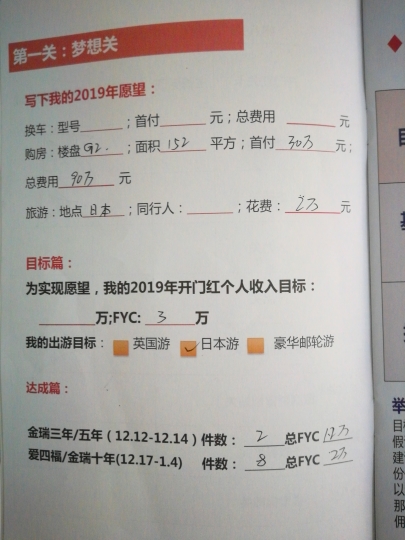 第一关：梦想关
写下我的2019年愿望：
换车：型号______；首付______元；总费用______元
购房：楼盘 G2. ；面积 152 平方；首付 30万 元；
总费用 90万 元
旅游：地点 日本 ；同行人：______；花费： 2万 元
目标篇：
为实现愿望，我的2019年开门红个人收入目标：
______万;FYC: 3 万
我的出游目标： 英国游 ✓日本游 豪华邮轮游
达成篇：
金瑞三年/五年（12.12-12.14）件数： 2 总FYC
爱四福/金瑞十年(12.17-1.4) 件数： 8 总FYC 2万
目
举
目标
假
建
份
以
那
佣